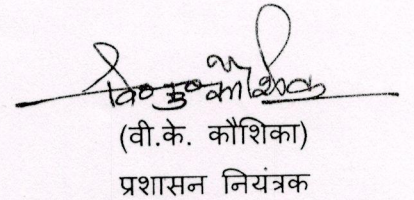 वि० कु० कौशिक
(वी.के. कौशिका)
प्रशासन नियंत्रक